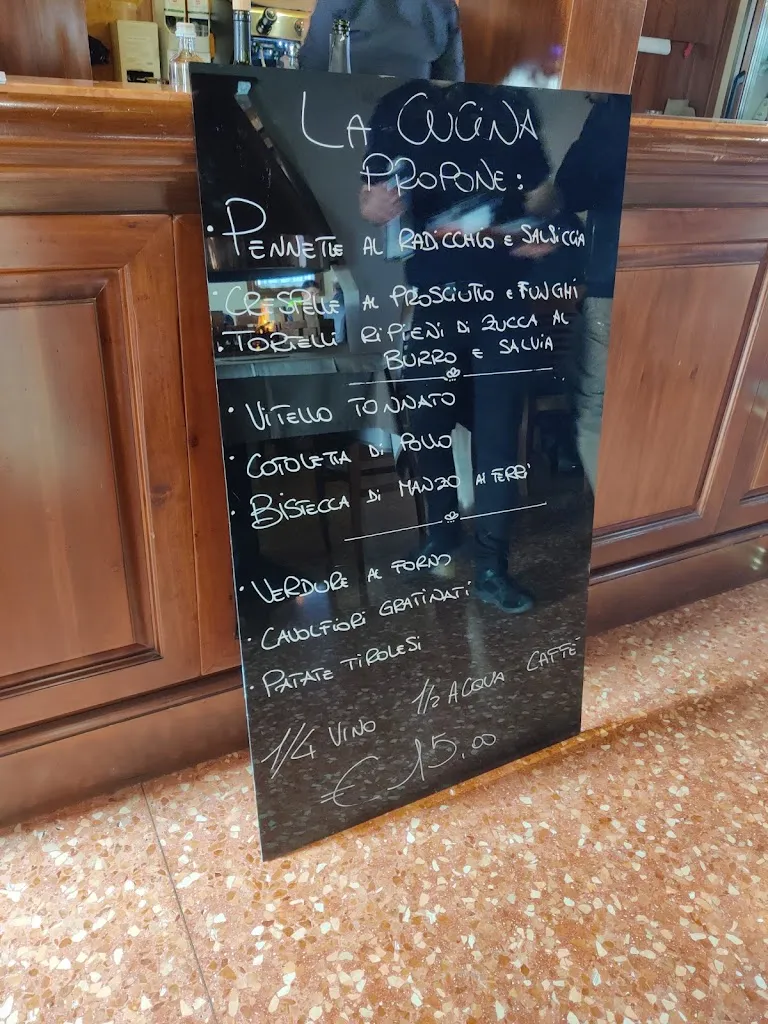 LA CUCINA
PROPONE:
· PENNETTE AL RADICCHIO E SALSICCIA
· CRESPELLE AL PROSCIUTTO E FUNGHI
· TORTELLI RIPIENI DI ZUCCA AL
BURRO E SALVIA
· VITELLO TONNATO
· COTOLETTA DI POLLO
· BISTECCA DI MANZO AI FERRI
· VERDURE AL FORNO
· CAVOLFIORI GRATINATI
· PATATE TIROLESI
1/4 VINO 1/2 ACQUA CAFFÈ
€ 15,00